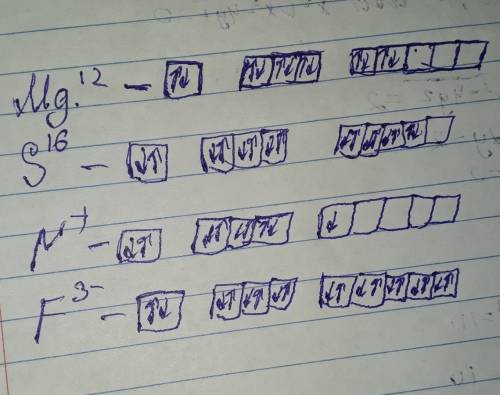 Mg 12 –
S 16 –
N 7 –
F 3- –